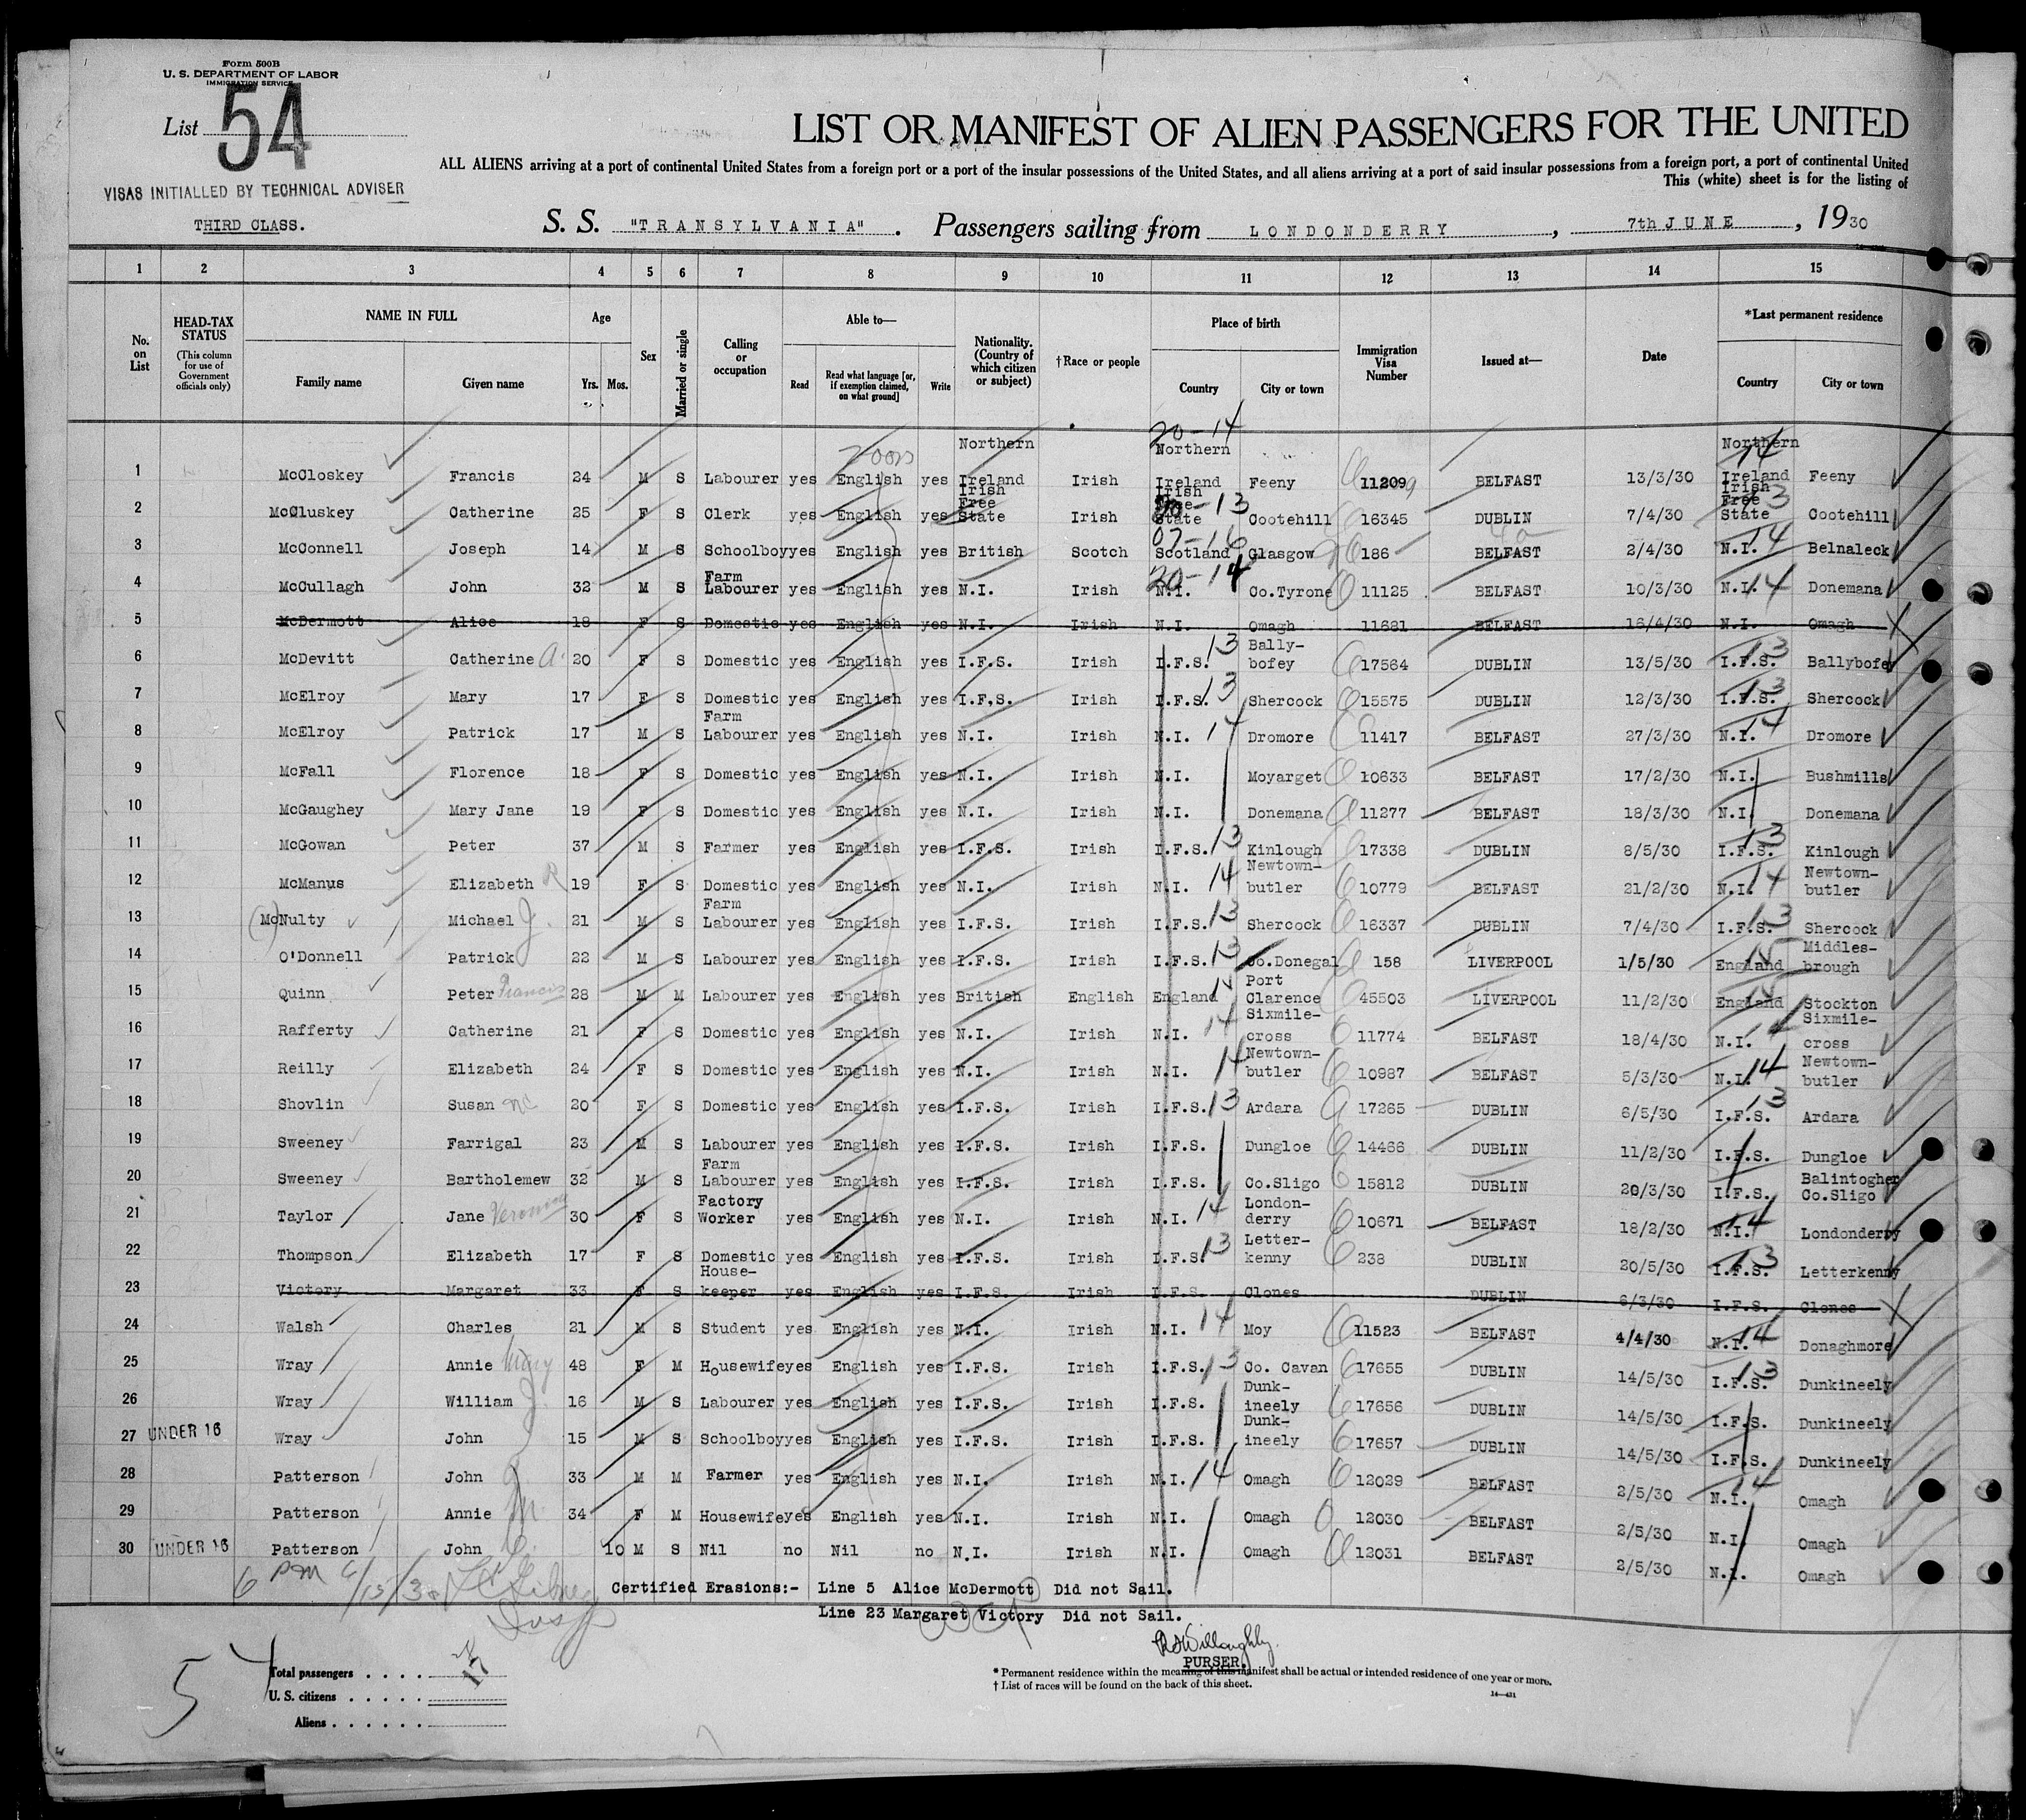 Form 500B
U. S. DEPARTMENT OF LABOR
IMMIGRATION SERVICE
List 54
LIST OR MANIFEST OF ALIEN PASSENGERS FOR THE UNITED
ALL ALIENS arriving at a port of continental United States from a foreign port or a port of the insular possessions of the United States, and all aliens arriving at a port of said insular possessions from a foreign port, a port of continental United
VISAS INITIALLED BY TECHNICAL ADVISER
This (white) sheet is for the listing of
THIRD CLASS.
S. S. "TRANSYLVANIA" . Passengers sailing from LONDONDERRY , 7th JUNE , 1930
1 2 3 4 5 6 7 8 9 10 11 12 13 14 15
No. on List
HEAD-TAX STATUS (This column for use of Government officials only)
NAME IN FULL
Family name Given name
Age
Yrs. Mos.
Sex
Married or single
Calling or occupation
Able to—
Read Read what language [or, if exemption claimed, on what ground] Write
Nationality. (Country of which citizen or subject)
†Race or people
Place of birth
Country City or town
Immigration Visa Number
Issued at—
Date
*Last permanent residence
Country City or town
1 McCloskey Francis 24 M S Labourer yes English yes Northern Ireland Irish 20-14 Northern Ireland Feeny 11209 BELFAST 13/3/30 Northern Ireland 14 Feeny
2 McCluskey Catherine 25 F S Clerk yes English yes Irish Free State Irish Irish Free State 13 Cootehill 16345 DUBLIN 7/4/30 Irish Free State 13 Cootehill
3 McConnell Joseph 14 M S Schoolboy yes English yes British Scotch 07-16 Scotland Glasgow 186 BELFAST 2/4/30 N.I. 14 Belnaleck
4 McCullagh John 32 M S Farm Labourer yes English yes N.I. Irish 20-14 N.I. Co.Tyrone 11125 BELFAST 10/3/30 N.I. 14 Donemana
5 McDermott Alice 18 F S Domestic yes English yes N.I. Irish N.I. Omagh 11681 BELFAST 16/4/30 N.I. Omagh
6 McDevitt Catherine A. 20 F S Domestic yes English yes I.F.S. Irish I.F.S. 13 Bally-bofey 17564 DUBLIN 13/5/30 I.F.S. 13 Ballybofey
7 McElroy Mary 17 F S Domestic yes English yes I.F.S. Irish I.F.S. 13 Shercock 15575 DUBLIN 12/3/30 I.F.S. 13 Shercock
8 McElroy Patrick 17 M S Farm Labourer yes English yes N.I. Irish N.I. 14 Dromore 11417 BELFAST 27/3/30 N.I. 14 Dromore
9 McFall Florence 18 F S Domestic yes English yes N.I. Irish N.I. Moyarget 10633 BELFAST 17/2/30 N.I. Bushmills
10 McGaughey Mary Jane 19 F S Domestic yes English yes N.I. Irish N.I. Donemana 11277 BELFAST 18/3/30 N.I. Donemana
11 McGowan Peter 37 M S Farmer yes English yes I.F.S. Irish I.F.S. 13 Kinlough 17338 DUBLIN 8/5/30 I.F.S. 13 Kinlough
12 McManus Elizabeth R 19 F S Domestic yes English yes N.I. Irish N.I. 14 Newtown-butler 10779 BELFAST 21/2/30 N.I. 14 Newtown-butler
13 McNulty Michael J. 21 M S Farm Labourer yes English yes I.F.S. Irish I.F.S. 13 Shercock 16337 DUBLIN 7/4/30 I.F.S. 13 Shercock
14 O'Donnell Patrick 22 M S Labourer yes English yes I.F.S. Irish I.F.S. 13 Co.Donegal 158 LIVERPOOL 1/5/30 England 15 Middles-brough
15 Quinn Peter Francis 28 M M Labourer yes English yes British English England Port Clarence 45503 LIVERPOOL 11/2/30 England 15 Stockton
16 Rafferty Catherine 21 F S Domestic yes English yes N.I. Irish N.I. 14 Sixmile-cross 11774 BELFAST 18/4/30 N.I. 14 Sixmile-cross
17 Reilly Elizabeth 24 F S Domestic yes English yes N.I. Irish N.I. 14 Newtown-butler 10987 BELFAST 5/3/30 N.I. 14 Newtown-butler
18 Shovlin Susan 20 F S Domestic yes English yes I.F.S. Irish I.F.S. 13 Ardara 17265 DUBLIN 6/5/30 I.F.S. 13 Ardara
19 Sweeney Farrigal 23 M S Labourer yes English yes I.F.S. Irish I.F.S. Dungloe 14466 DUBLIN 11/2/30 I.F.S. Dungloe
20 Sweeney Bartholemew 32 M S Farm Labourer yes English yes I.F.S. Irish I.F.S. Co.Sligo 15812 DUBLIN 20/3/30 I.F.S. Balintogher Co.Sligo
21 Taylor Jane Veronica 30 F S Factory Worker yes English yes N.I. Irish N.I. 14 London-derry 10671 BELFAST 18/2/30 N.I. 14 Londonderry
22 Thompson Elizabeth 17 F S Domestic yes English yes I.F.S. Irish I.F.S. 13 Letter-kenny 238 DUBLIN 20/5/30 I.F.S. 13 Letterkenny
23 Victory Margaret 33 F S House-keeper yes English yes I.F.S. Irish I.F.S. Clones DUBLIN 6/3/30 I.F.S. Clones
24 Walsh Charles 21 M S Student yes English yes N.I. Irish N.I. 14 Moy 11523 BELFAST 4/4/30 N.I. 14 Donaghmore
25 Wray Annie Mary 48 F M Housewife yes English yes I.F.S. Irish I.F.S. 13 Co. Cavan 17655 DUBLIN 14/5/30 I.F.S. 13 Dunkineely
26 Wray William J. 16 M S Labourer yes English yes I.F.S. Irish I.F.S. Dunk-ineely 17656 DUBLIN 14/5/30 I.F.S. Dunkineely
27 UNDER 16 Wray John 15 M S Schoolboy yes English yes I.F.S. Irish I.F.S. Dunk-ineely 17657 DUBLIN 14/5/30 I.F.S. Dunkineely
28 Patterson John 33 M M Farmer yes English yes N.I. Irish N.I. 14 Omagh 12029 BELFAST 2/5/30 N.I. 14 Omagh
29 Patterson Annie M. 34 F M Housewife yes English yes N.I. Irish N.I. Omagh 12030 BELFAST 2/5/30 N.I. Omagh
30 UNDER 16 Patterson John 10 M S Nil no Nil no N.I. Irish N.I. Omagh 12031 BELFAST 2/5/30 N.I. Omagh
6 PM 6/15/30
Certified Erasions:- Line 5 Alice McDermott Did not Sail.
Line 23 Margaret Victory Did not Sail.
PURSER.
54
Total passengers . . . .
U. S. citizens . . . . .
Aliens . . . . . .
* Permanent residence within the meaning of this manifest shall be actual or intended residence of one year or more.
† List of races will be found on the back of this sheet.
14—431